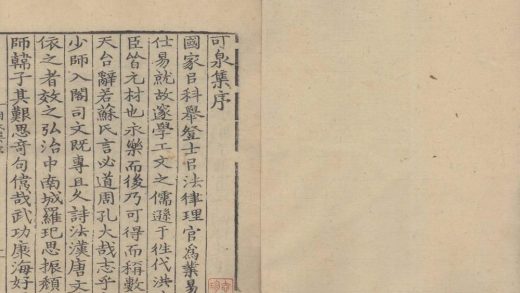 可泉集序
國家㠯科舉登士㠯法律理官爲業易
仕易就故邃學工文之儒遜于徃代洪
臣皆元材也永樂而後乃可得而稱數
天台辭若蘇氏言必道周孔大哉志乎
少師入閣司文既專且久詩法漢唐文
依之者效之弘治中南城羅玘思振頽
師韓子其艱思奇句偉哉武功康海好